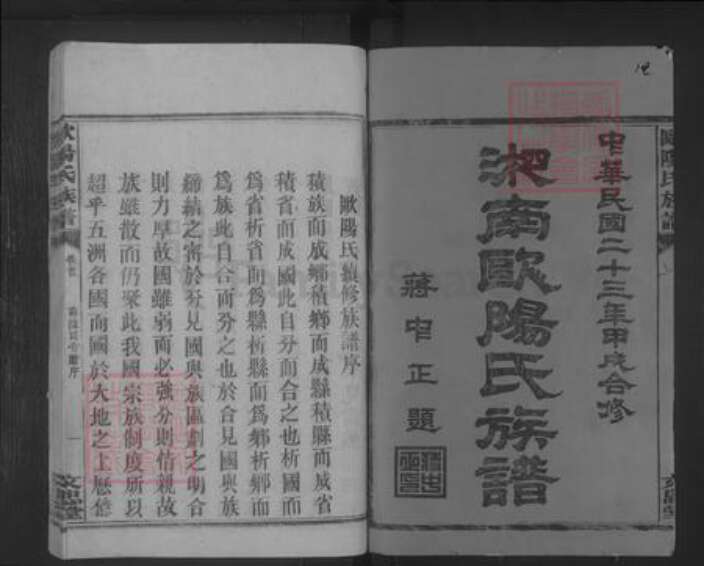 12
歐陽氏族譜
中華民國二十三年甲戌合修
湘南歐陽氏族譜
蔣中正題
歐陽氏續修族譜序
積族而成鄉積鄉而成縣積縣而成省
積省而成國此自分而合之也析國而
爲省析省而爲縣析縣而爲鄉析鄉而
爲族此自合而分之也於合見國與族
締結之密於分見國與族區劃之明合
則力厚故國雖弱而必強分則情親故
族雖散而仍聚此我國宗族制度所以
超乎五洲各國而國於大地之上歷條
歐陽氏族譜
卷首
序
一
文忠堂